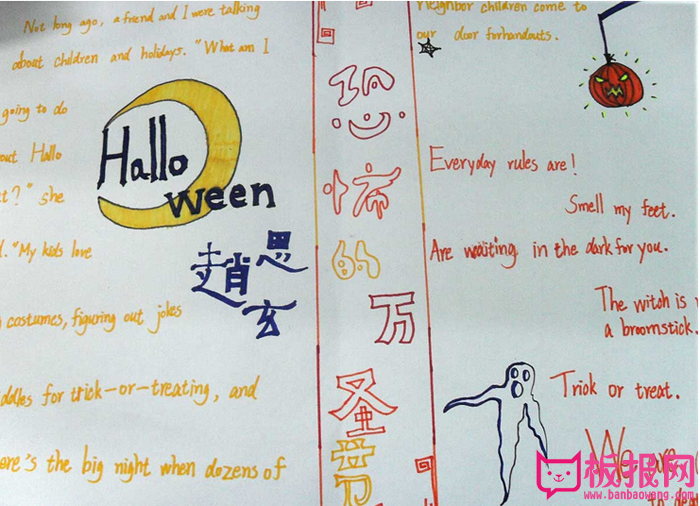 Not long ago, a friend and I were talking
about children and holidays. "What am I
going to do
out Hallo
t?" she
d. "My kids love
costumes, figuring out jokes
ddles for trick-or-treating, and
ere's the big night when dozens of
Hallo
ween
趙思
玄
恐
怖
的
万
圣
节
neighbor children come to
our door for handouts.
Everyday rules are!
Smell my feet.
Are waiting in the dark for you.
The witch is
a broomstick.
Trick or treat.
We are
板报网
www.banbaowang.com